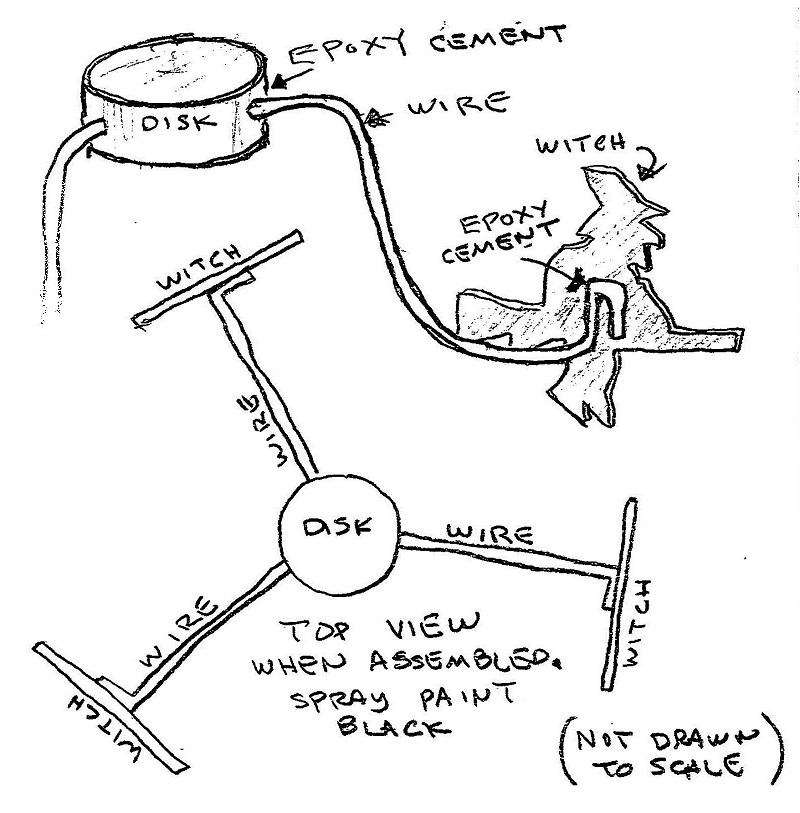 EPOXY CEMENT
DISK
WIRE
WITCH
EPOXY
CEMENT
WITCH
WIRE
DISK
WIRE
WITCH
WIRE
WITCH
TOP VIEW
WHEN ASSEMBLED.
SPRAY PAINT
BLACK
(NOT DRAWN
TO SCALE)